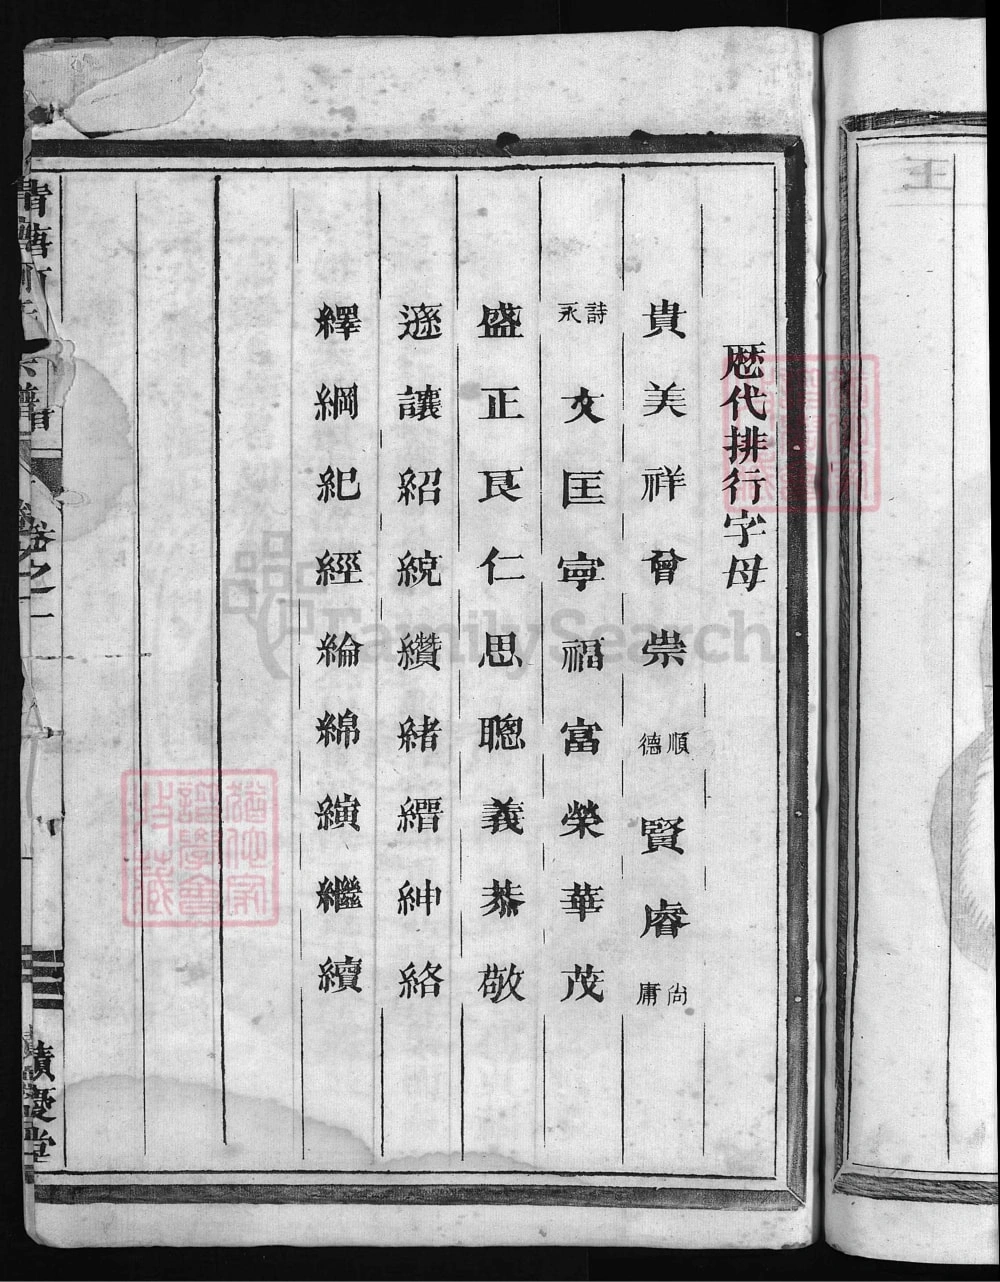 歷代排行字母
貴美祥曾崇順德賢睿尚庸
詩永文匡寧福富榮華茂
盛正良仁思聰義恭敬
遜讓紹統纘緒縉紳絡
繹綱紀經綸綿縯繼續
卷之一
積慶堂
王
FamilySearch